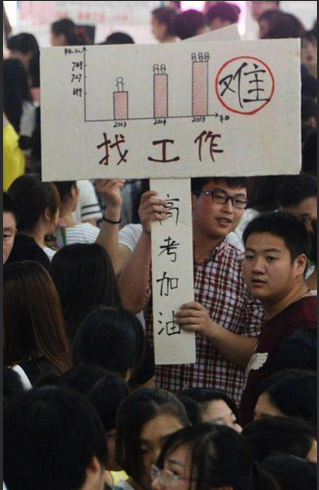 749
727
699
2013 2014 2015 年份
难
找工作
高考加油